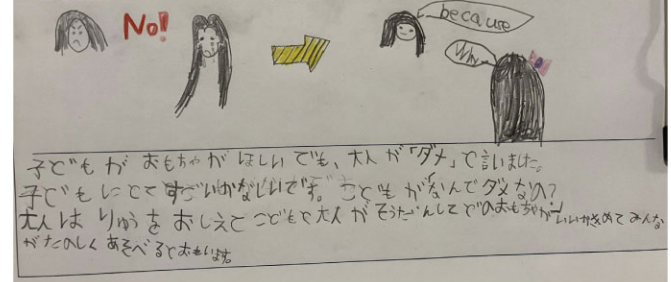 No!
because
Why
子どもが おもちゃが ほしいでも、大人が「ダメ」と言いました。
子どもにとて すごいかなしいです。こどもが「なんでダメなの?
大人は りゆうを おしえて こどもと大人が そうだんして どのおもちゃが いいかきめて みんな
がたのしく あそべるとおもいます。